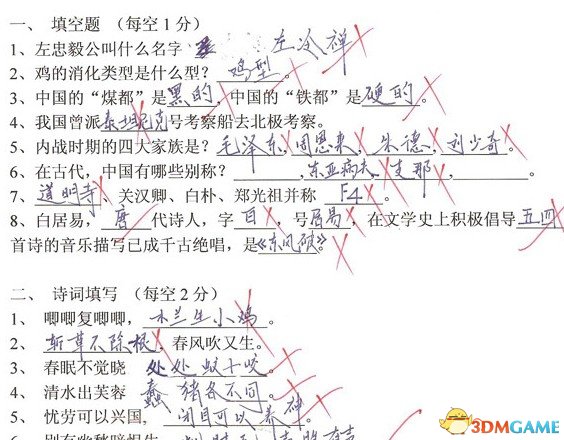 一、 填空题 （每空1分）
1、左忠毅公叫什么名字 左冷禅
2、鸡的消化类型是什么型？ 鸡型 。
3、中国的“煤都”是黑的，中国的“铁都”是硬的。
4、我国曾派泰坦尼克号考察船去北极考察。
5、内战时期的四大家族是？毛泽东，周恩来，朱德，刘少奇。
6、在古代，中国有哪些别称？ ，东亚病夫，支那，
7、道明寺、关汉卿、白朴、郑光祖并称 F4 。
8、白居易，唐代诗人，字白，号居易，在文学史上积极倡导五四
首诗的音乐描写已成千古绝唱，是《东风破》。
二、 诗词填写 （每空2分）
1、 唧唧复唧唧，木兰生小鸡。
2、 斩草不除根，春风吹又生。
3、 春眠不觉晓 处处蚊子咬。
4、 清水出芙蓉 蠢猪各不同。
5、 忧劳可以兴国，闭目可以养神
3DMGAME